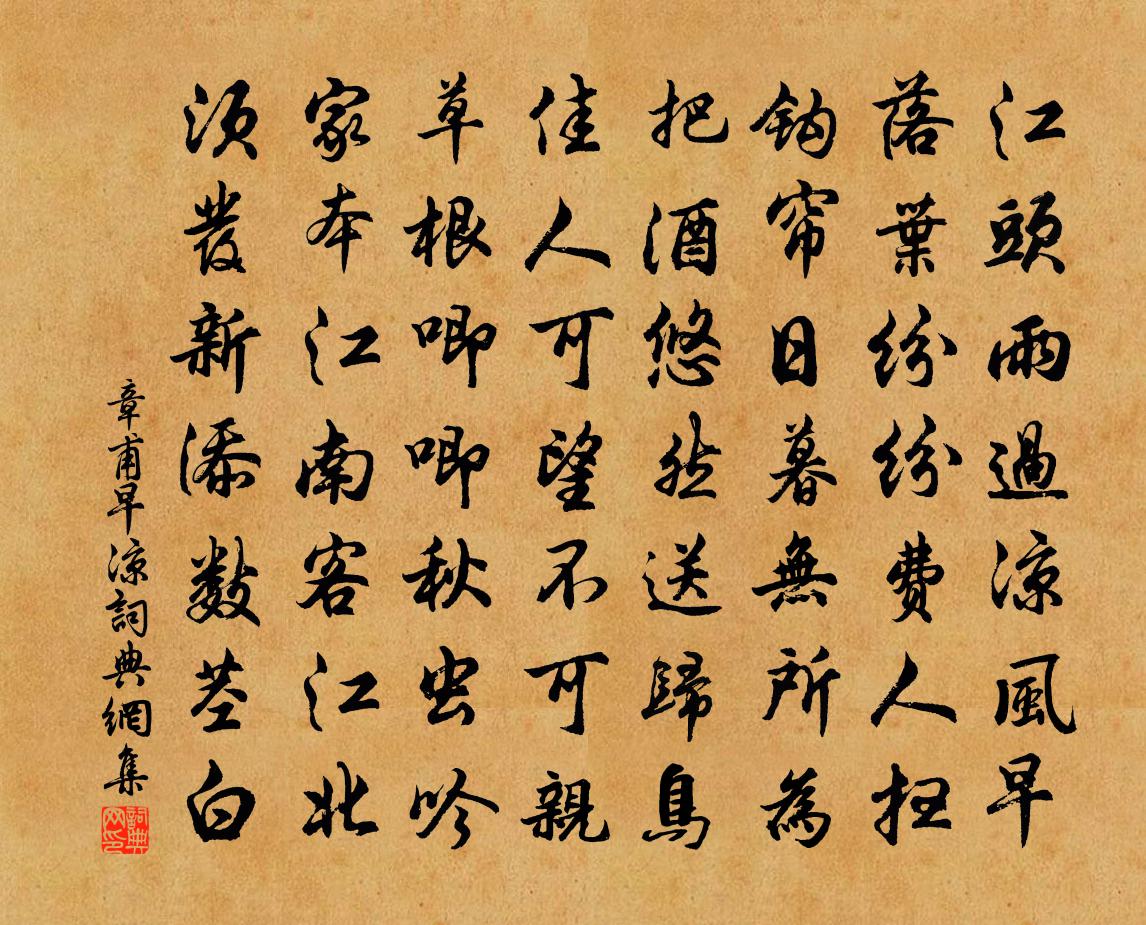 江頭雨過涼風早
落葉紛紛費人扫
鈎帘日暮無所為
把酒悠然送歸鳥
佳人可望不可親
草根唧唧秋虫吟
家本江南客江北
須發新添數茎白
章甫早涼詞典網集
詞典网印